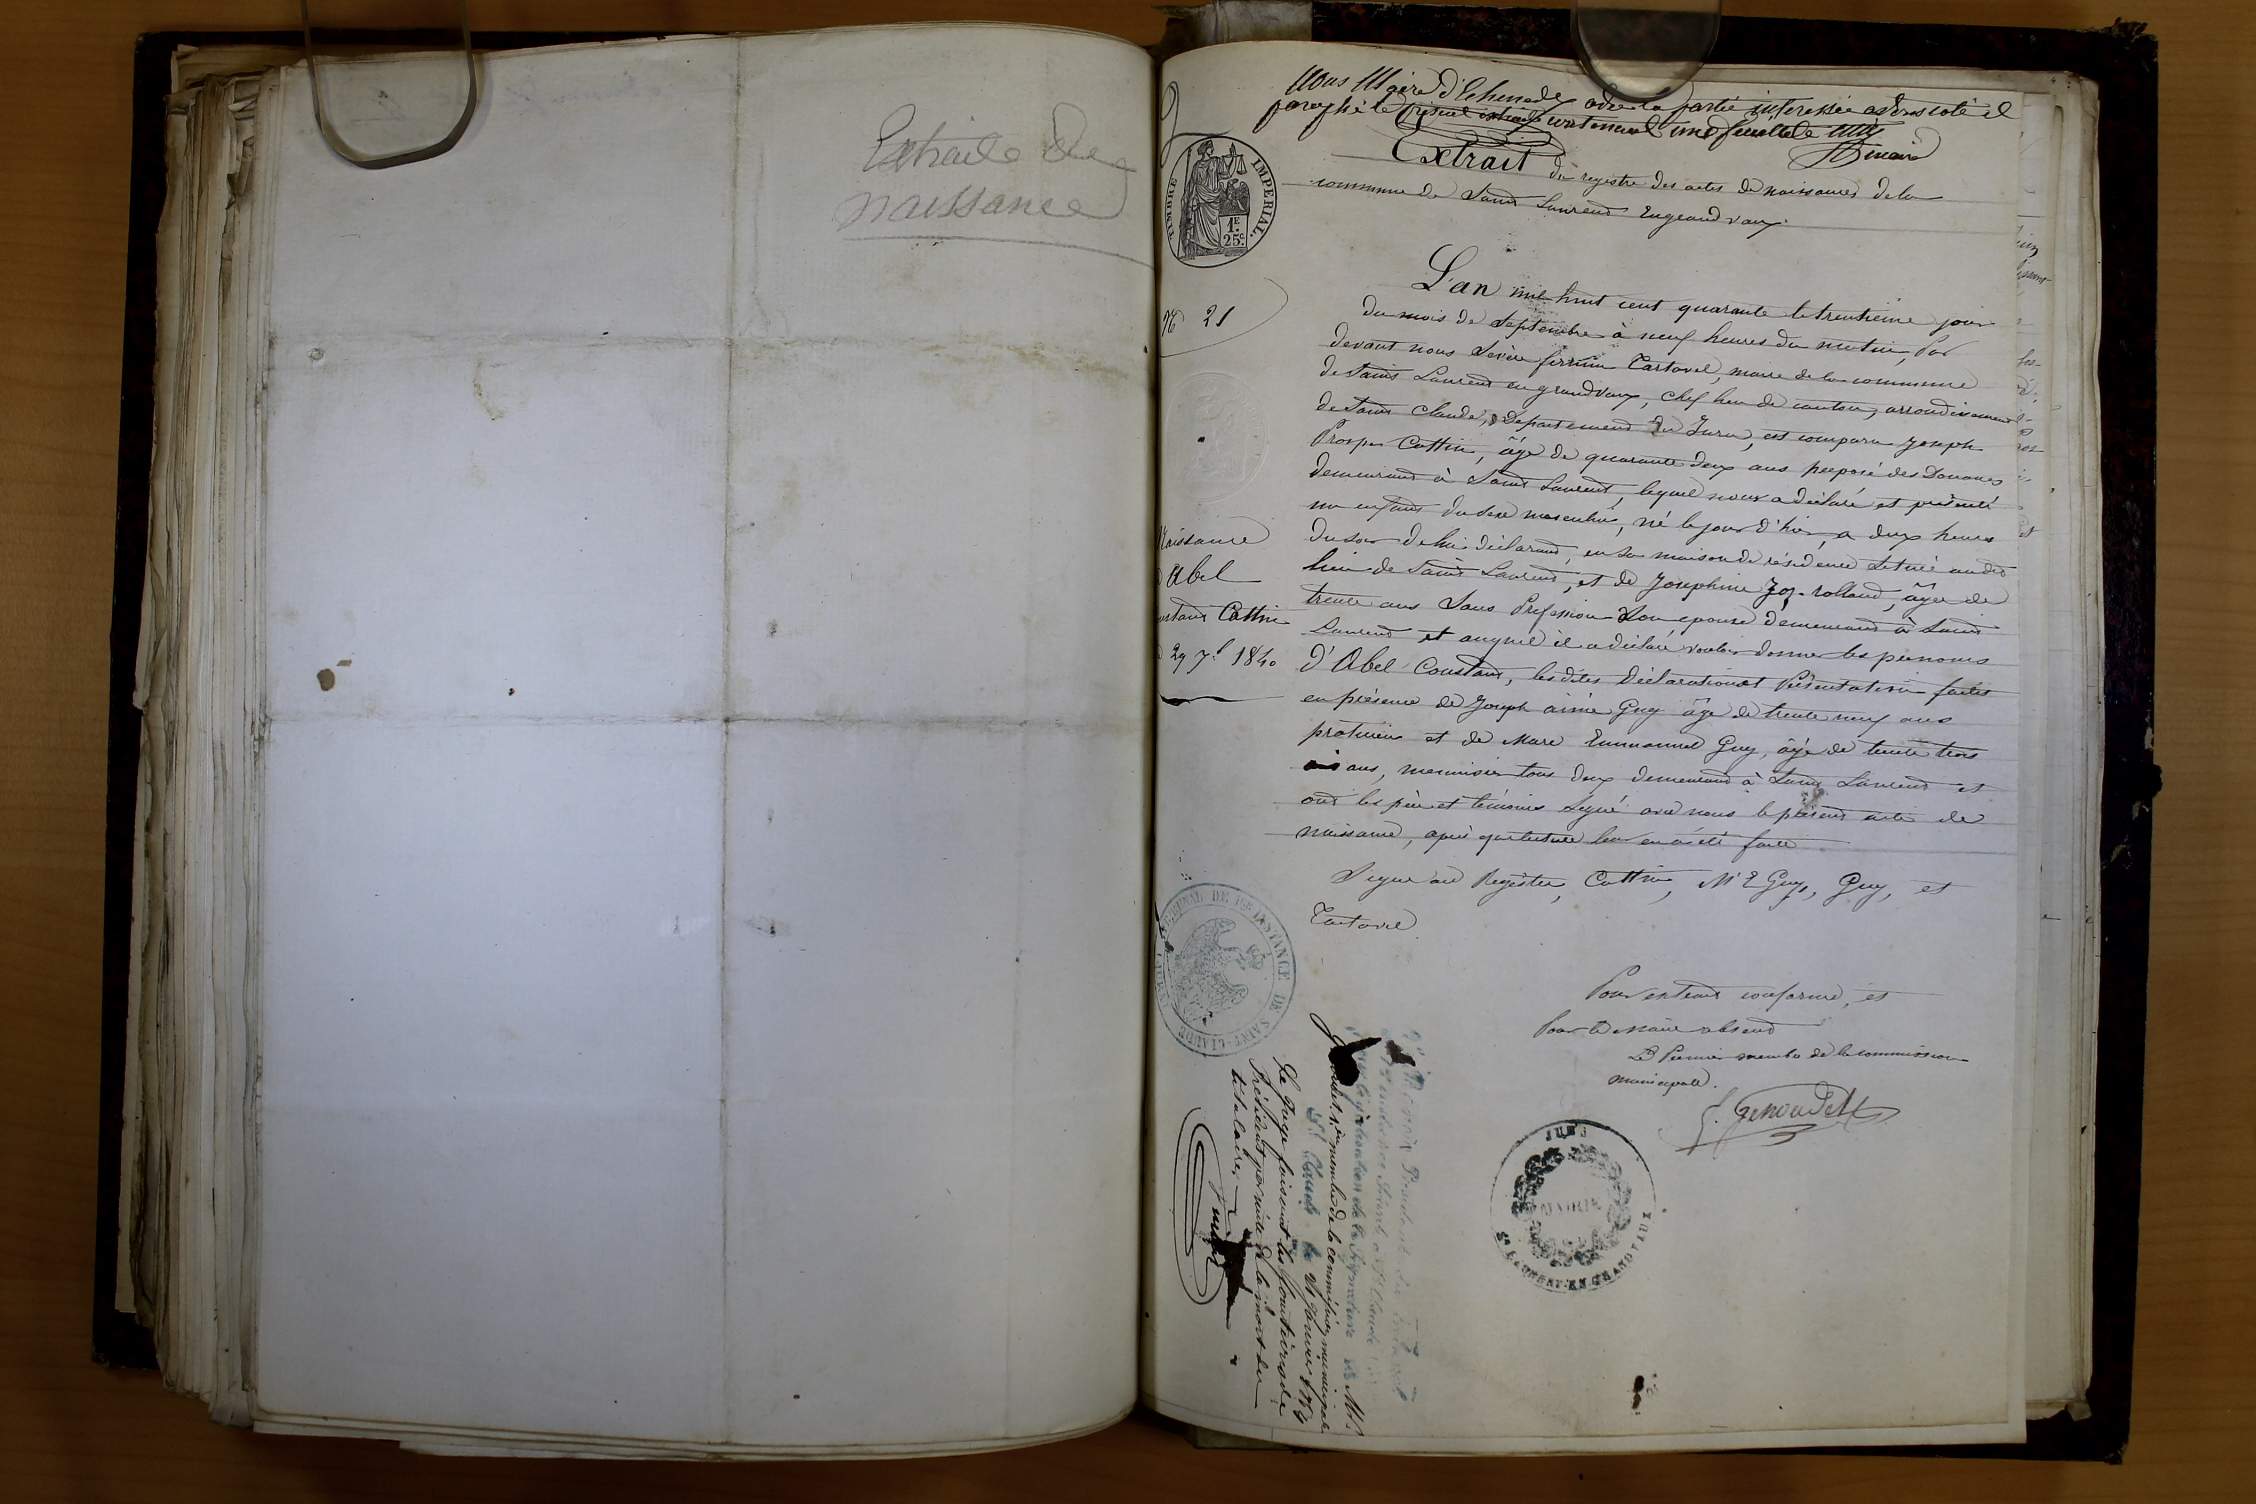 Extrait de
naissance
Nous Maire d' avec la partie intéressée avons coté et
paraphé le présent extrait contenant une feuille
Extrait du registre des actes de naissances de la
commune de Saint Laurent En grandvaux.
TIMBRE IMPERIAL.
1F.
25c.
N° 21
L'an mil huit cent quarante le trentième jour
du mois de Septembre à neuf heures du matin, Par
devant nous Sévère firmin Tartavel, maire de la commune
de Saint Laurent en grandvaux, chef lieu de canton, arrondissement
de Saint Claude, Département du Jura, est comparu Joseph
Prosper Cattin, âgé de quarante deux ans préposé des Douanes
demeurant à Saint Laurent, lequel nous a déclaré et présenté
un enfant du sexe masculin, né le jour d'hier, a deux heures
du soir de lui déclarant, en sa maison de résidence située au dit
lieu de Saint Laurent, et de Josephine Joz-rolland, âgée de
trente ans Sans Profession Son épouse demeurant à Saint
Laurent et auquel il a déclaré vouloir donner les prénoms
d'Abel Constant, lesdites Déclaration et Présentation faites
en présence de Joseph aimé Guy âgé de trente neuf ans
 et de Marc Emmanuel Guy, âgé de trente trois
ans, menuisier tous deux demeurant à Saint Laurent et
ont les père et témoins signé avec nous le présent acte de
naissance, après que lecture leur en a été faite
Naissance
d'Abel
Constant Cattin
29 7b 1840
Signé au Registre, Cattin, M E Guy, Guy, et
Tartavel
Pour extrait conforme, et
Pour le Maire absent
Le Premier membre de la commission
municipale.
Genoudet
JURA
MAIRIE
St LAURENT-EN-GRANDVAUX
TRIBUNAL DE 1re INSTANCE DE SAINT-CLAUDE
JURA
Président du Tribunal
St Claude
pour légalisation de la Signature de Mr
Genoudet, 1er membre de la commission municipale
St Claude, le Janvier 1874
Le Juge faisant les fonctions de
Président par suite de la mort du
titulaire,